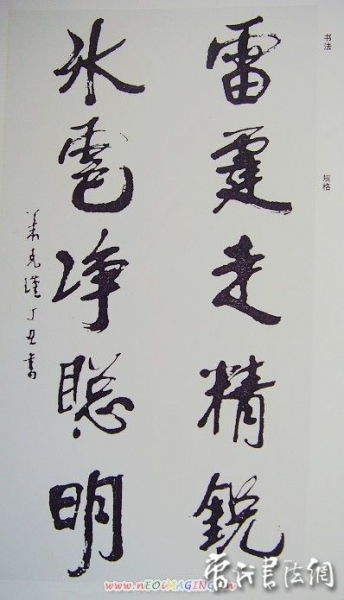 雷霆走精鋭
冰雹净聪明
克瑾丁丑書
书法
规格
www.nEOIMAGING.cn
書法網